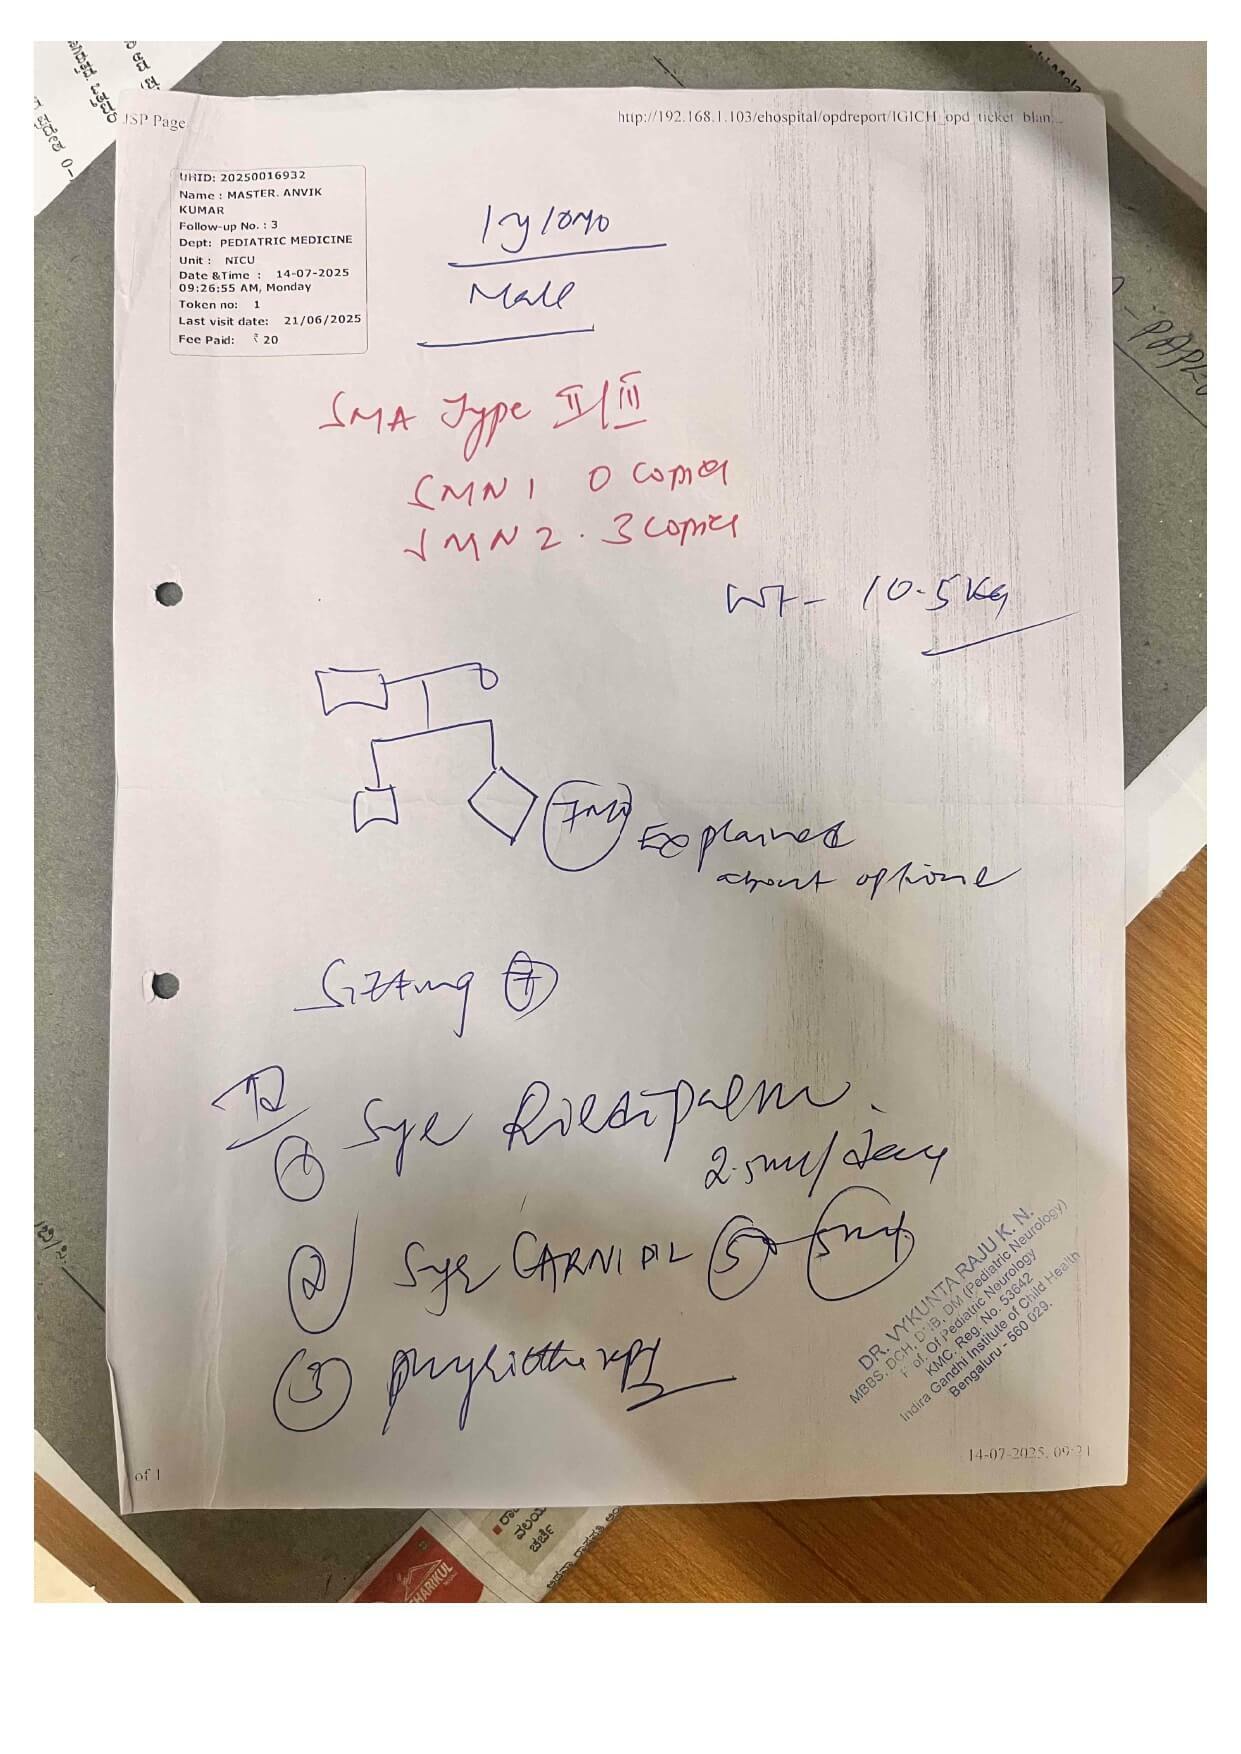 JSP Page
http://192.168.1.103/ehospital/opdreport/IGICH_opd_ticket_blan...
UHID: 20250016932
Name : MASTER. ANVIK
KUMAR
Follow-up No. : 3
Dept: PEDIATRIC MEDICINE
Unit : NICU
Date &Time : 14-07-2025
09:26:55 AM, Monday
Token no: 1
Last visit date: 21/06/2025
Fee Paid: ₹ 20
1y10mo
Male
SMA Type II/III
SMN1 0 copies
SMN2. 3 copies
Wt- 10.5kg
7mo
Explained
about options
Sitting +
Rx
1 Syr
2.5ml/day
2 Syr CARNI 5 5ml
3 physiotherapy
DR. VYKUNTA RAJU K. N.
MBBS, DCH, DNB, DM (Pediatric Neurology)
Prof. Of Pediatric Neurology
KMC. Reg. No. 53642
Indira Gandhi Institute of Child Health
Bengaluru - 560 029.
14-07-2025, 09:21
of 1
HARIKUL